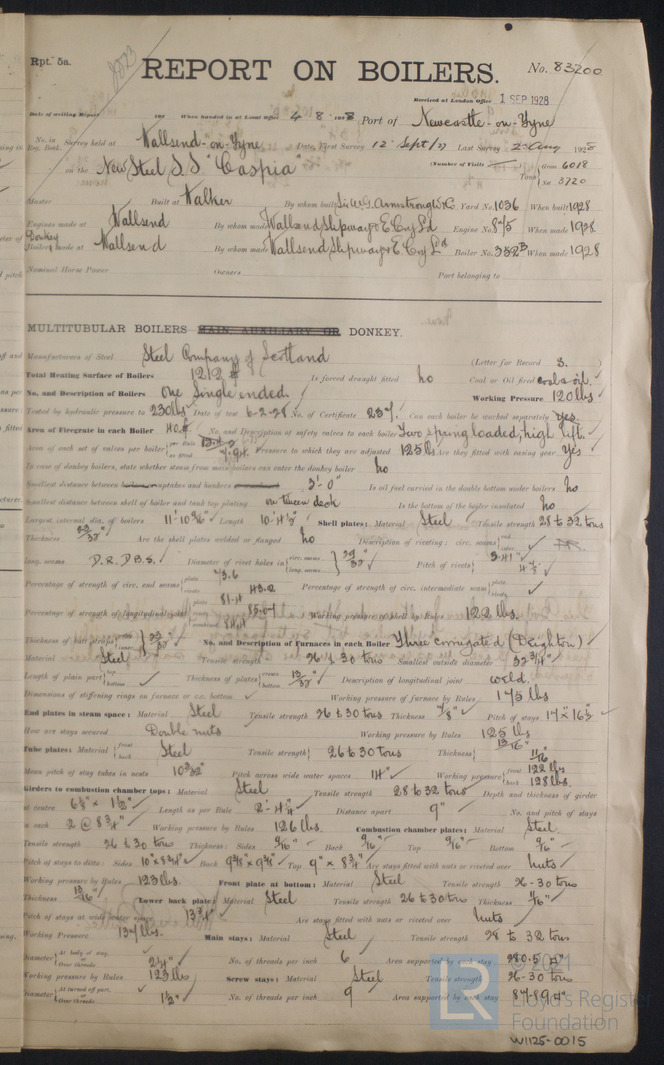 Rpt. 5a.
8823
REPORT ON BOILERS.
No. 83200
Received at London Office 1 SEP 1928
Date of writing Report 192 When handed in at Local Office 4 · 8 · 1928 Port of Newcastle-on-Tyne
No. in Reg. Book. Survey held at Wallsend-on-Tyne Date, First Survey 12 Sept/27 Last Survey 2 Aug 1928
on the New Steel S.S. "Caspia" (Number of Visits ) Tons Gross 6018 Net 3720
Master Built at Walker By whom built Sir W.G. Armstrong W. & Co. Yard No. 1036 When built 1928
Engines made at Wallsend By whom made Wallsend Slipway & E. Coy Ld Engine No. 875 When made 1928
Donkey Boilers made at Wallsend By whom made Wallsend Slipway & E. Coy Ld Boiler No. When made 1928
Nominal Horse Power Owners Port belonging to
MULTITUBULAR BOILERS MAIN, AUXILIARY, OR DONKEY.
Manufacturers of Steel Steel Company of Scotland (Letter for Record S. )
Total Heating Surface of Boilers 1212 Is forced draught fitted no Coal or Oil fired coal & oil.
No. and Description of Boilers One Single ended. Working Pressure 120 lbs
Tested by hydraulic pressure to 230 lbs Date of test 6-2-28 No. of Certificate 237. Can each boiler be worked separately yes.
Area of Firegrate in each Boiler 40 No. and Description of safety valves to each boiler Two spring loaded, high lift.
Area of each set of valves per boiler per Rule as fitted Pressure to which they are adjusted 125 lbs Are they fitted with easing gear Yes
In case of donkey boilers, state whether steam from main boilers can enter the donkey boiler no
Smallest distance between boilers or uptakes and bunkers or woodwork 3'-0" Is oil fuel carried in the double bottom under boilers no
Smallest distance between shell of boiler and tank top plating on tween deck Is the bottom of the boiler insulated no
Largest internal dia. of boilers 11'-10 Length 10'-4½" Shell plates: Material Steel Tensile strength 28 to 32 tons
Thickness 29/32" Are the shell plates welded or flanged no Description of riveting: circ. seams end inter.
long. seams D.R. D.B.S. Diameter of rivet holes in circ. seams long. seams 29/32" Pitch of rivets 3.41"
Percentage of strength of circ. end seams plate rivets 43.2 Percentage of strength of circ. intermediate seam plate rivets
Percentage of strength of longitudinal joint plate 81.4 rivets 85.07 combined Working pressure of shell by Rules 122 lbs.
Thickness of butt straps outer inner 23/32" No. and Description of Furnaces in each Boiler Three corrugated (Deighton)
Material Steel Tensile strength 26 to 30 tons Smallest outside diameter 32¾"
Length of plain part top bottom Thickness of plates crown bottom 13/32" Description of longitudinal joint weld.
Dimensions of stiffening rings on furnace or c.c. bottom Working pressure of furnace by Rules 175 lbs
End plates in steam space: Material Steel Tensile strength 26 to 30 tons Thickness 7/8" Pitch of stays 17" x 16½"
How are stays secured Double nuts Working pressure by Rules 125 lbs
Tube plates: Material front back Steel Tensile strength 26 to 30 tons Thickness 13/16" 11/16"
Mean pitch of stay tubes in nests 10 Pitch across wide water spaces 14" Working pressure front 122 lbs back 128 lbs.
Girders to combustion chamber tops: Material Steel Tensile strength 28 to 32 tons Depth and thickness of girder
at centre 6½" x 1½" Length as per Rule 2'-4 Distance apart 9" No. and pitch of stays
in each 2 @ 8¾" Working pressure by Rules 126 lbs. Combustion chamber plates: Material Steel.
Tensile strength 26 to 30 tons Thickness: Sides 9/16" Back 9/16" Top 9/16" Bottom 9/16"
Pitch of stays to ditto: Sides 10" x 8¾" Back 9⅜" x 9⅜" Top 9" x 8¾" Are stays fitted with nuts or riveted over nuts
Working pressure by Rules 123 lbs. Front plate at bottom: Material Steel Tensile strength 26-30 tons
Thickness 13/16" Lower back plate: Material Steel Tensile strength 26 to 30 tons Thickness 11/16"
Pitch of stays at wide water space 13¾" Are stays fitted with nuts or riveted over nuts
Working Pressure 134 lbs. Main stays: Material Steel Tensile strength 28 to 32 tons
Diameter At body of stay, or Over threads 2¼" No. of threads per inch 6 Area supported by each stay 280.5
Working pressure by Rules 123 lbs Screw stays: Material Steel Tensile strength 26-30 tons
Diameter At turned off part, or Over threads 1½" No. of threads per inch 9 Area supported by each stay 87.89
© 2021
LR Lloyd's Register
Foundation
W1125-0015